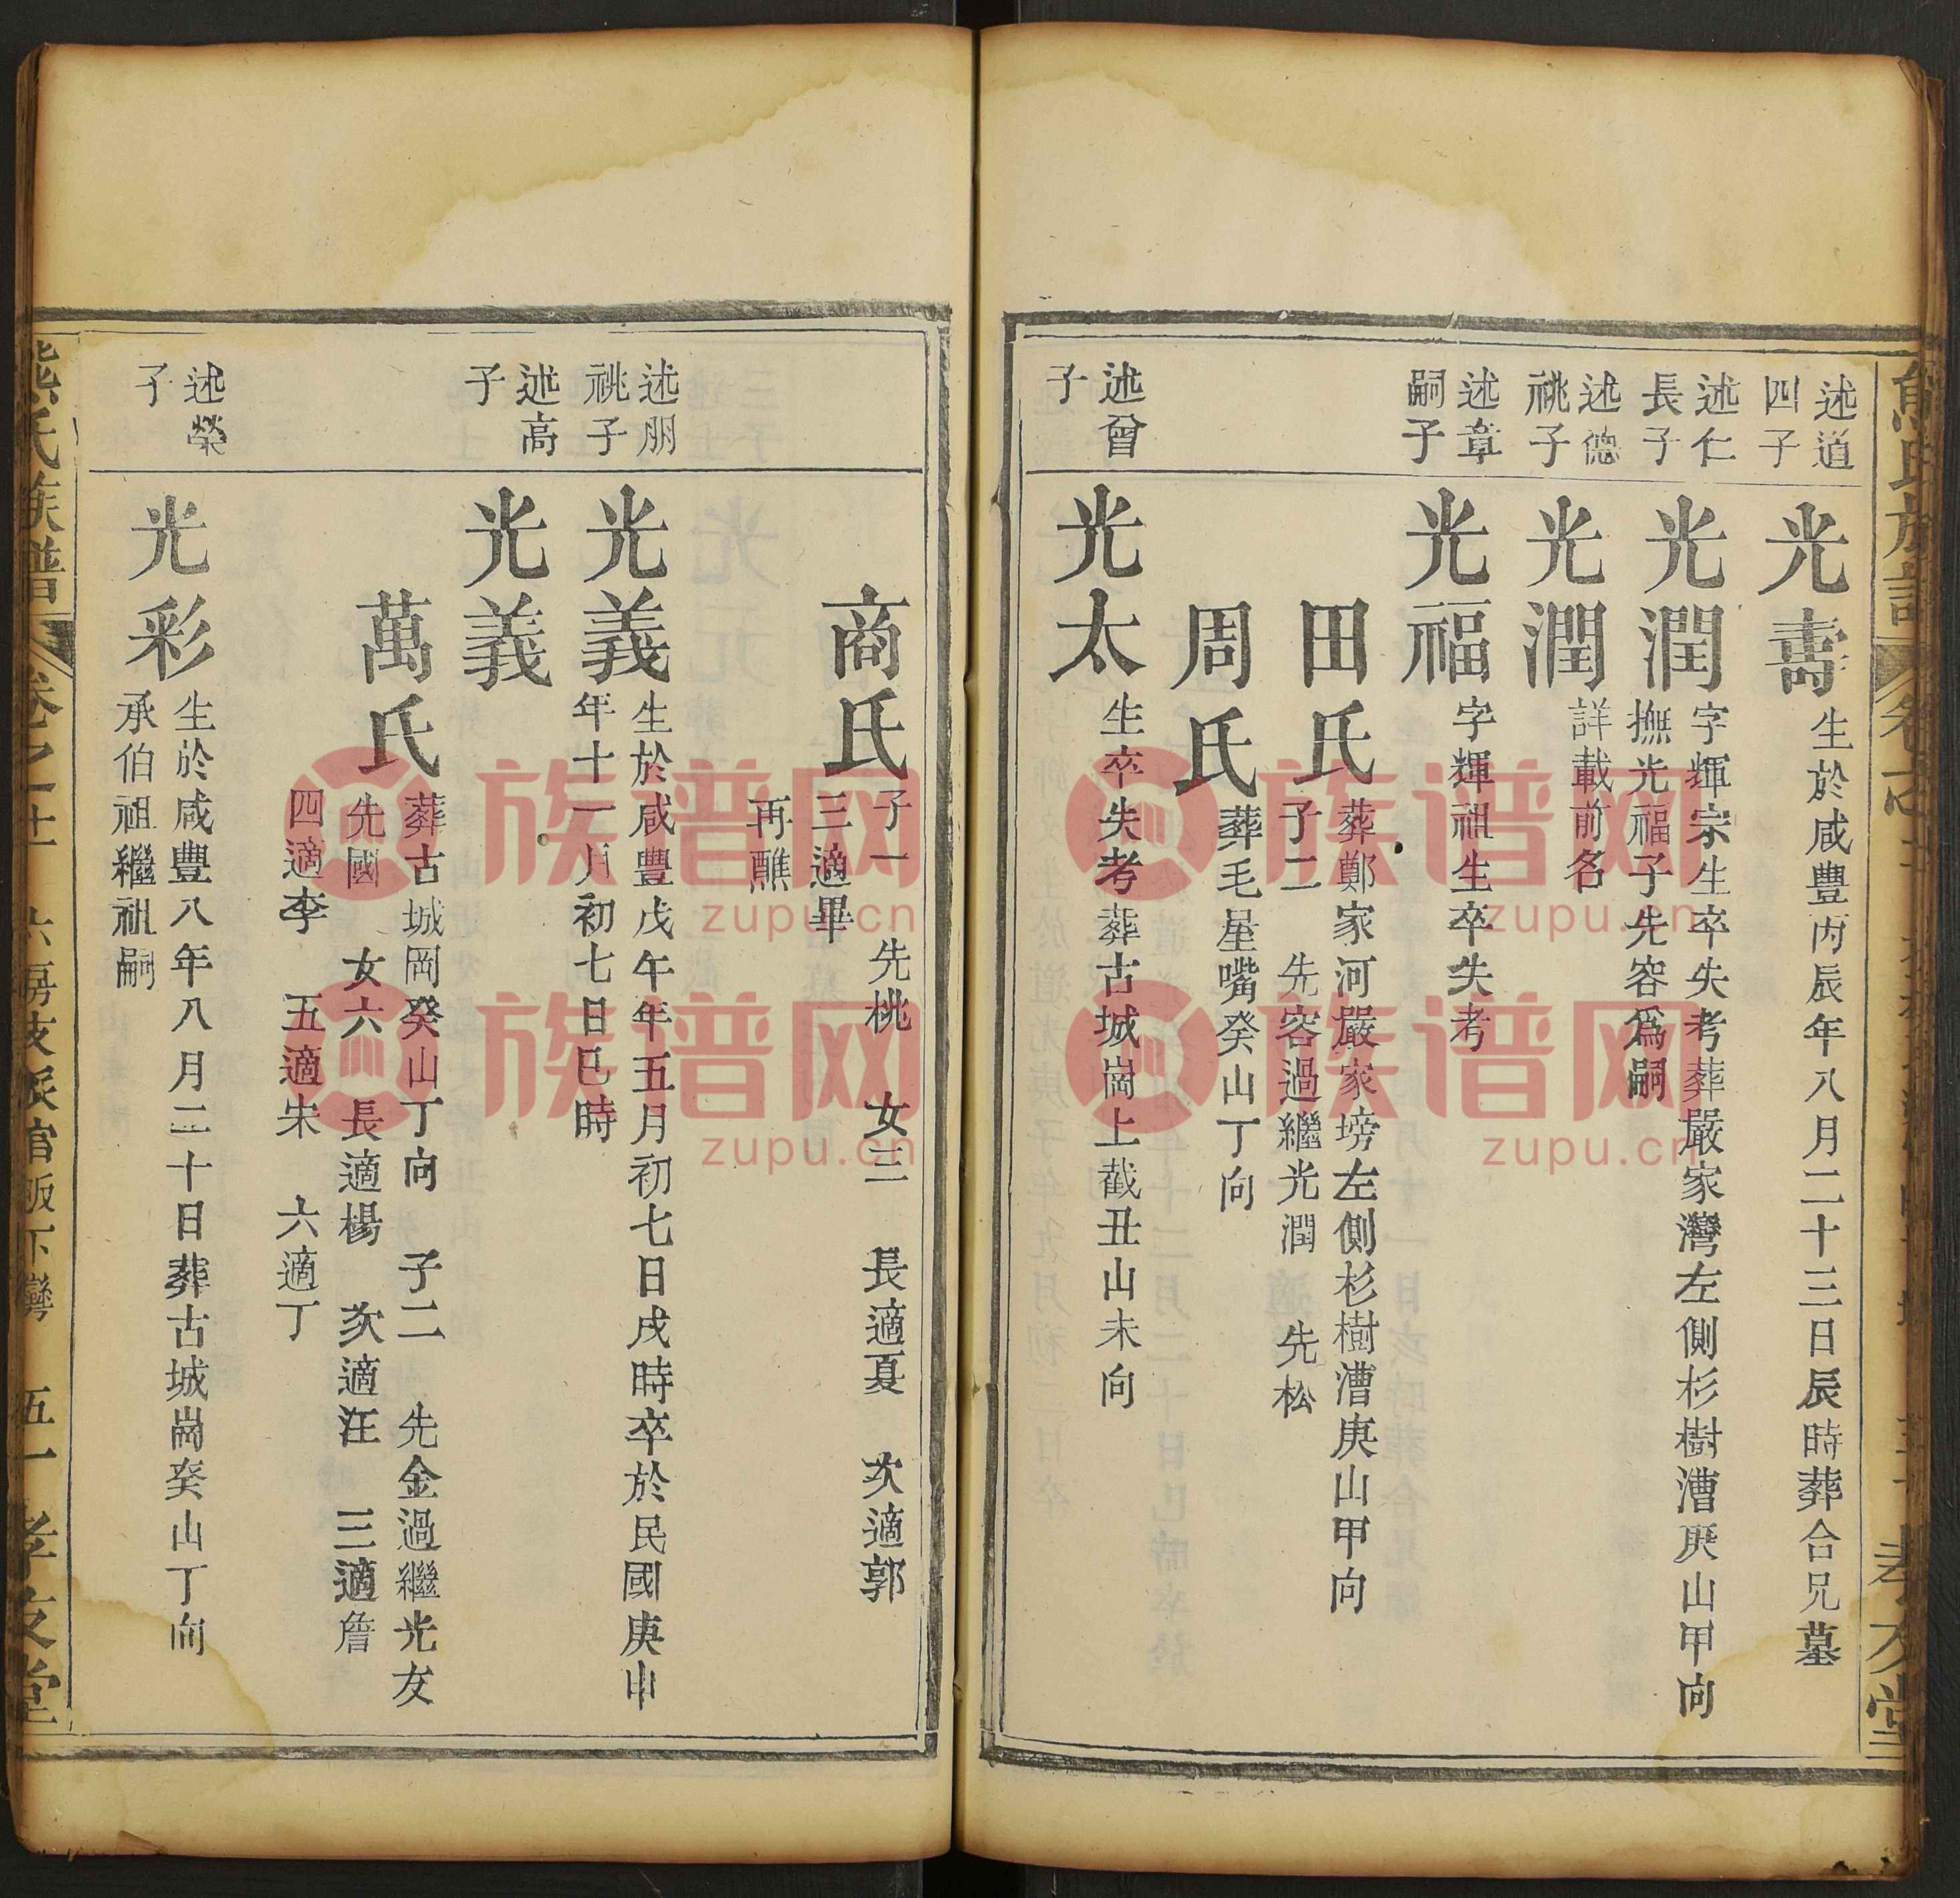 述道
四子
光壽
生於咸豐丙辰年八月二十三日辰時葬合兄墓
述仁
長子
光潤
字輝宗生卒失考葬嚴家灣左側杉樹漕庚山甲向
撫光福子先容爲嗣
述德
祧子
光潤
詳載前名
述章
嗣子
光福
字輝祖生卒失考
田氏
葬鄭家河嚴家塝左側杉樹漕庚山甲向
子二 先容過繼光潤 先松
周氏
葬毛星嘴癸山丁向
述曾
子
光太
生卒失考葬古城崗上截丑山未向
商氏
子一 先桃 女三 長適夏 次適郭
三適畢
再醮
述朋
祧子
光義
生於咸豐戊午年五月初七日戌時卒於民國庚申
年十一月初七日巳時
述高
子
光義
萬氏
葬古城岡癸山丁向 子二 先金過繼光友
先國 女六 長適楊 次適汪 三適詹
四適李 五適朱 六適丁
述榮
子
光彩
生於咸豐八年八月二十日葬古城崗癸山丁向
承伯祖繼祖嗣
熊氏族譜 卷之十 六房 五一 孝友堂
族谱网
zupu.cn
族谱网
zupu.cn
族谱网
zupu.cn
族谱网
zupu.cn